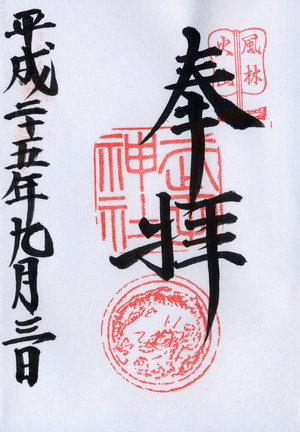 風林
火山
奉拝
武田
神社
平成二十五年九月三日